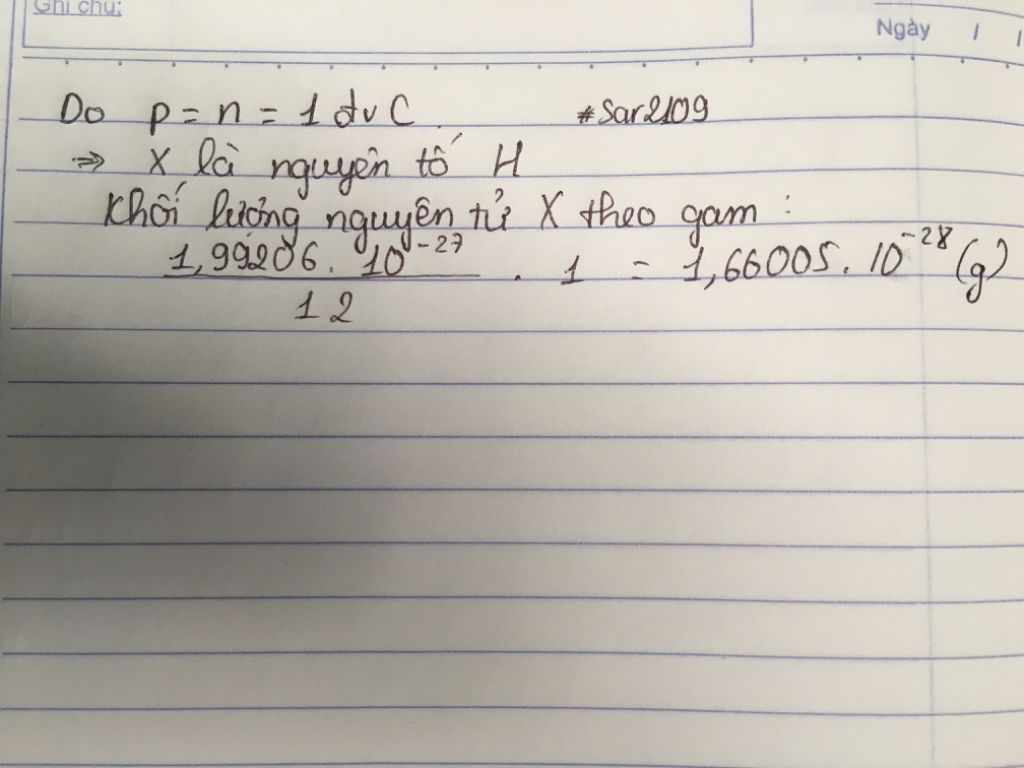 Ghi chú:
Ngày / /
Do p = n = 1 đvC. #Sar2109
=> X là nguyên tố H
Khối lượng nguyên tử X theo gam :
1,99206. 10⁻²⁷ / 12 . 1 = 1,66005. 10⁻²⁸ (g)